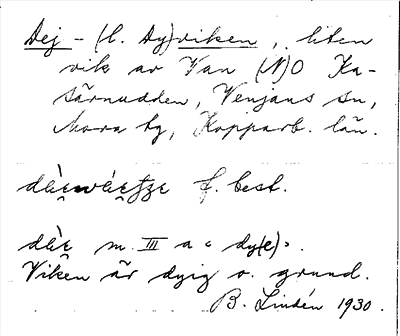 Dej - (l. Dy)viken, liten
vik av Van (N)O Ka-
särnudden, Venjans sn,
Mora tg, Kopparb. län.
f. best.
m. III a « dy(e)».
Viken är dyig o. grund.
B. Lindén 1930.